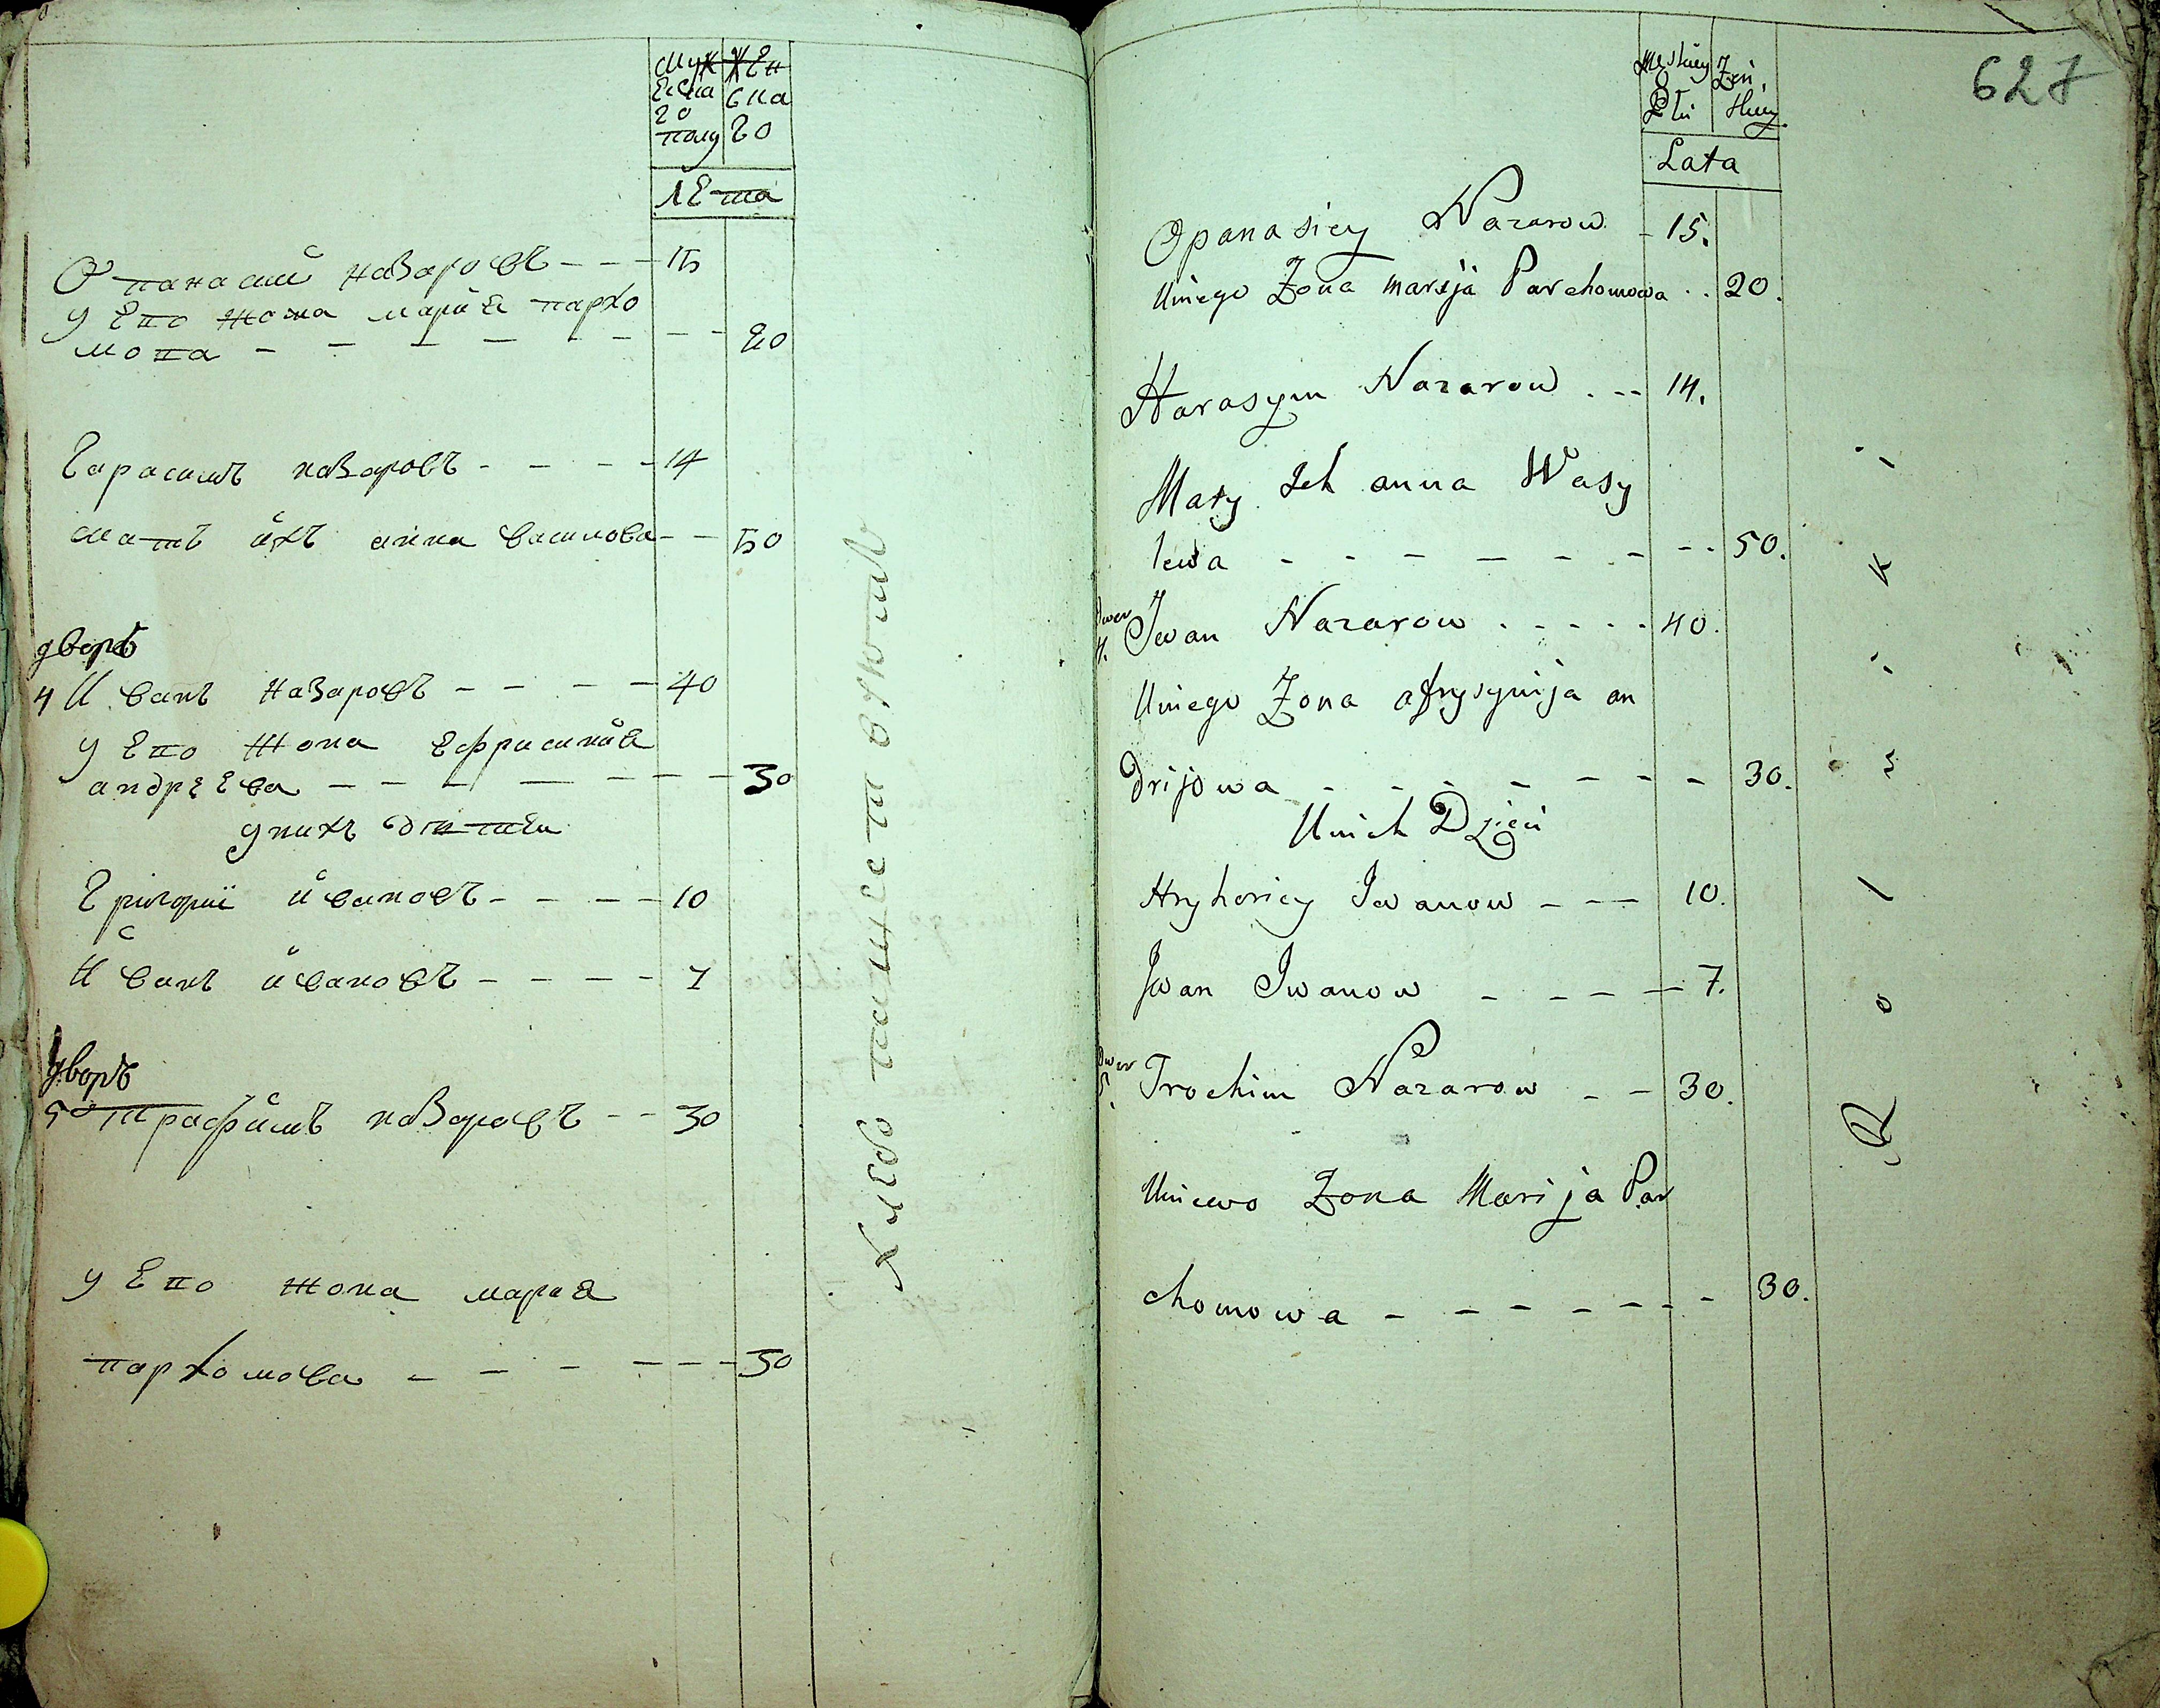 Муж
Жен
еска
ска
го
го
полу
лета
Опанасий Назаровъ - - - 15
у его жона мария пархо
мова - - - - - - - - 20
Гарасимъ назаровъ - - - - 14
мать ихъ анна василова - - 50
дворъ
4 Иванъ Назаровъ - - - - 40
у его жона ефрисиния
андреева - - - - - - - - 30
у нихъ дети
Григории ивановъ - - - - 10
Иванъ ивановъ - - - - 7
дворъ
5 Трафимъ назаровъ - - 30
у его жона мария
пархомова - - - - - - - 30
627
Męskiey
Żeń
Płci
skiey
Lata
Opanasiey Nazarow - 15.
Uniego Żona marija Parchomowa . . 20.
Harasym Nazarow . - - 14.
Maty Ich anna Wasy
lewa - - - - - - - - - 50.
Dwor
4. Iwan Nazarow . . . . . 40.
Uniego Żona afrysynija an
Drijowa - - - - - - - 30.
Unich Dzieci
Hryhoriey Iwanow - - - 10.
Iwan Iwanow - - - - 7.
Dwor
5. Trochim Nazarow - - 30.
Uniewo Żona Marija Par
chomowa - - - - - - - 30.